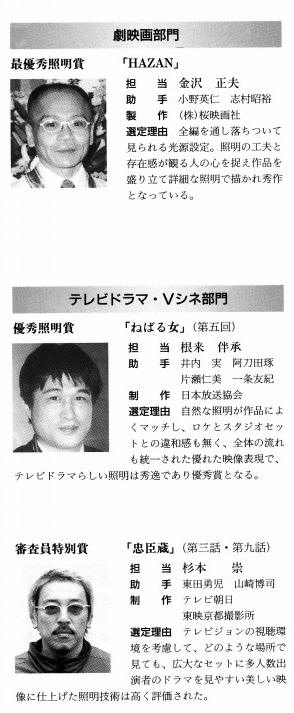 劇映画部門
最優秀照明賞
「HAZAN」
担　当　金沢　正夫
助　手　小野英仁　志村昭裕
製　作　(株)桜映画社
選定理由　全編を通し落ちついて
見られる光源設定。照明の工夫と
存在感が観る人の心を捉え作品を
盛り立て詳細な照明で描かれ秀作
となっている。
テレビドラマ・Vシネ部門
優秀照明賞
「ねばる女」(第五回)
担　当　根来　伴承
助　手　井内　実　阿刀田琢
片瀬仁美　一条友紀
制　作　日本放送協会
選定理由　自然な照明が作品によ
くマッチし、ロケとスタジオセッ
トとの違和感も無く、全体の流れ
も統一された優れた映像表現で、
テレビドラマらしい照明は秀逸であり優秀賞となる。
審査員特別賞
「忠臣蔵」(第三話・第九話)
担　当　杉本　崇
助　手　東田勇児　山崎博司
制　作　テレビ朝日
東映京都撮影所
選定理由　テレビジョンの視聴環
境を考慮して、どのような場所で
見ても、広大なセットに多人数出
演者のドラマを見やすい美しい映
像に仕上げた照明技術は高く評価された。